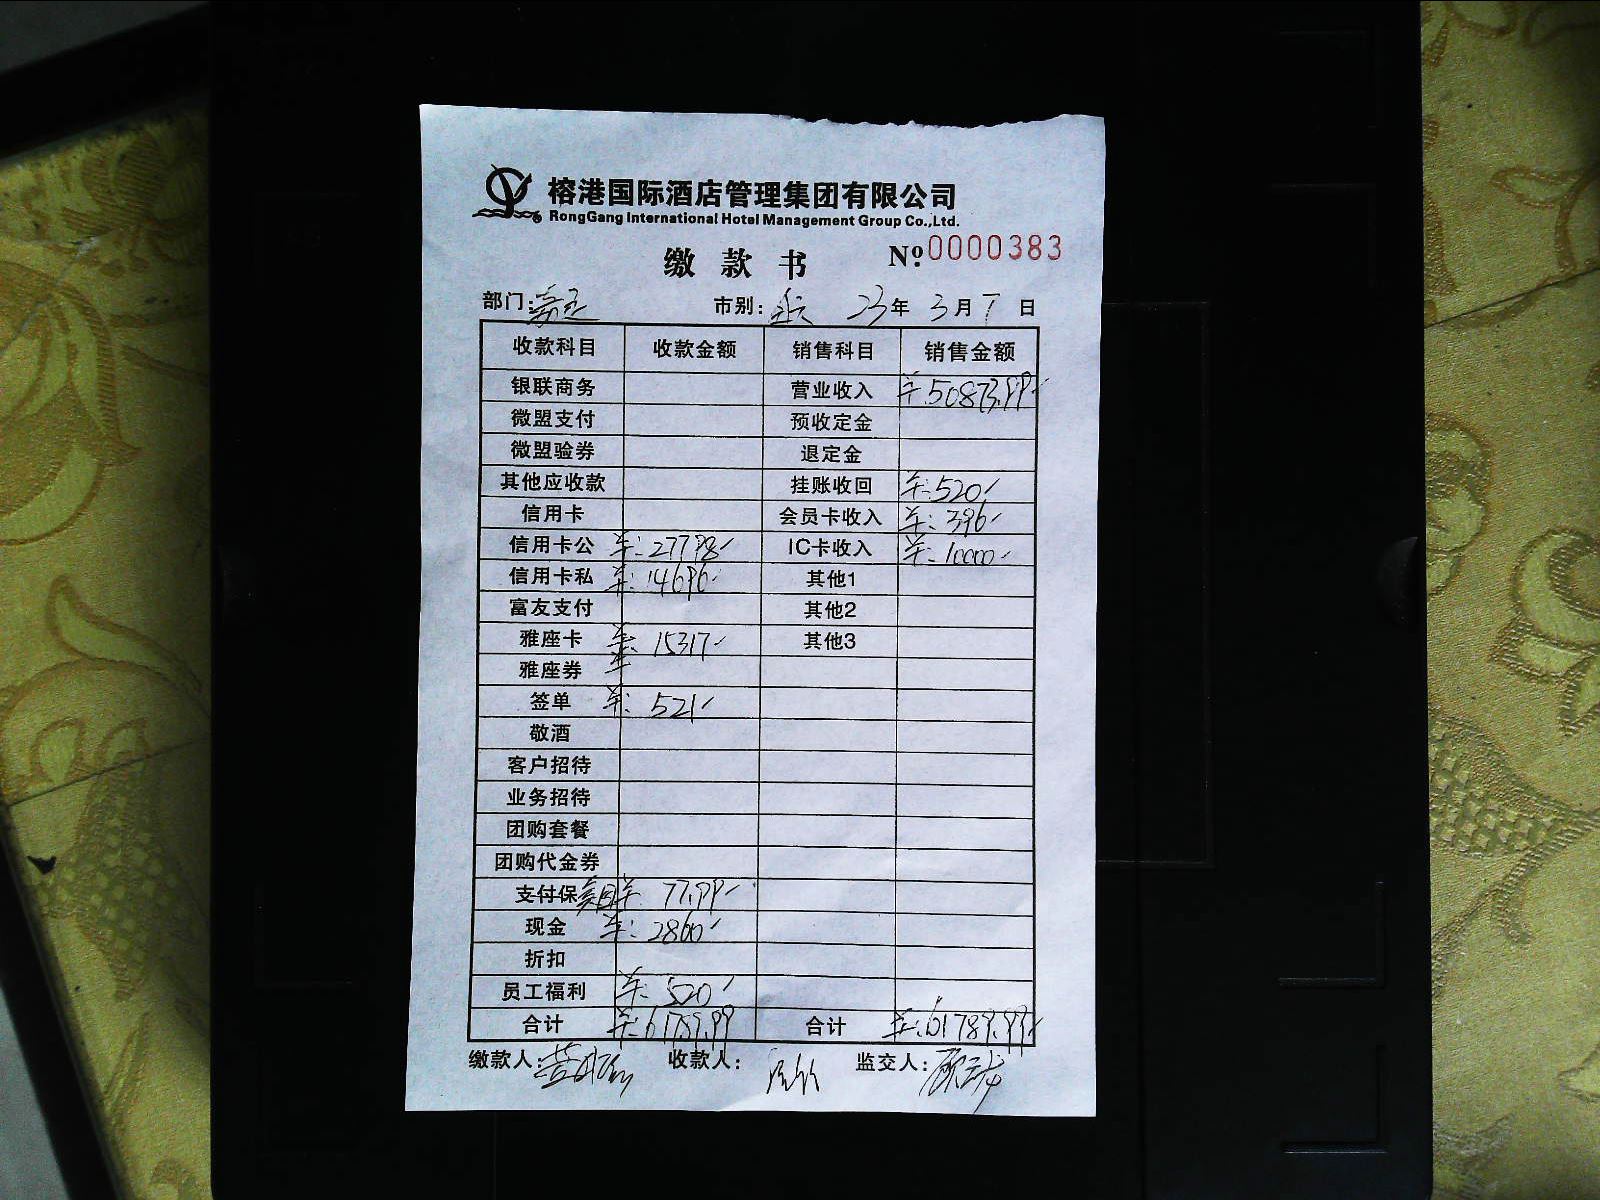 榕港国际酒店管理集团有限公司
RongGang International Hotel Management Group Co.,Ltd.
缴款书 Nº 0000383
部门: 市别: 全天 23年 3月 7日
收款科目 收款金额 销售科目 销售金额
银联商务 营业收入 ¥:50873.99
微盟支付 预收定金
微盟验券 退定金
其他应收款 挂账收回 ¥:520
信用卡 会员卡收入 ¥:396
信用卡公 ¥:27798 IC卡收入 ¥:10000
信用卡私 ¥:14696 其他1
富友支付 其他2
雅座卡 ¥:15317 其他3
雅座券 ¥
签单 ¥:521
敬酒
客户招待
业务招待
团购套餐
团购代金券
支付保 美团 ¥ 77.99
现金 ¥:2860
折扣
员工福利 ¥:520
合计 ¥:61789.99 合计 ¥:61789.99
缴款人: 收款人: 监交人: